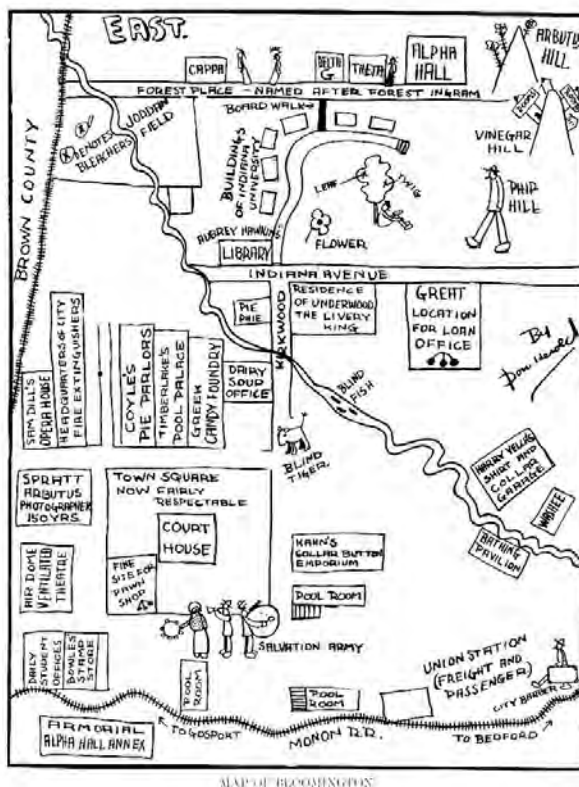 EAST.
CAPPA
DELTA
G
THETA
ALPHA
HALL
ARBUTUS
HILL.
FOREST PLACE - NAMED AFTER FOREST INGRAM
BOARD WALK
X DENOTES
BLEACHERS
JORDAN
FIELD
BUILDINGS
OF INDIANA
UNIVERSITY
VINEGAR
HILL
LEAF
TWIG
PHIP
HILL
BROWN COUNTY
AUBREY HAWKINS
LIBRARY
FLOWER
INDIANA AVENUE
PIE
PHIE
KIRKWOOD
RESIDENCE
OF UNDERWOOD
THE LIVERY
KING
GREAT
LOCATION
FOR LOAN
OFFICE
By
Don Herold
SAM DILL'S
OPERA HOUSE
HEADQUARTERS OF CITY
FIRE EXTINGUISHERS
COYLE'S
PIE PARLORS
TIMBERLAKE'S
POOL PALACE
GREEK
CANDY FOUNDRY
DAIRY
SOUP
OFFICE
BLIND
FISH
BLIND
TIGER.
HARRY VELLA'S
SHIRT AND
COLLAR
GARAGE
WAHEE
BATHING
PAVILION
SPRATT
ARBUTUS
PHOTOGRAPHER
150 YRS.
TOWN SQUARE
NOW FAIRLY
RESPECTABLE
COURT
HOUSE
KAHN'S
COLLAR BUTTON
EMPORIUM
AIR DOME
VENTILATED
THEATRE
FINE
SITE FOR
PAWN
SHOP
POOL ROOM
SALVATION ARMY
DAILY
STUDENT
OFFICES
BOWLES
STAMP
STORE
POOL
ROOM
POOL
ROOM
UNION STATION
(FREIGHT AND
PASSENGER)
CITY BARBER
ARMORIAL
ALPHA HALL ANNEX
TO GOSPORT
MONON R.R.
TO BEDFORD
MAP OF BLOOMINGTON